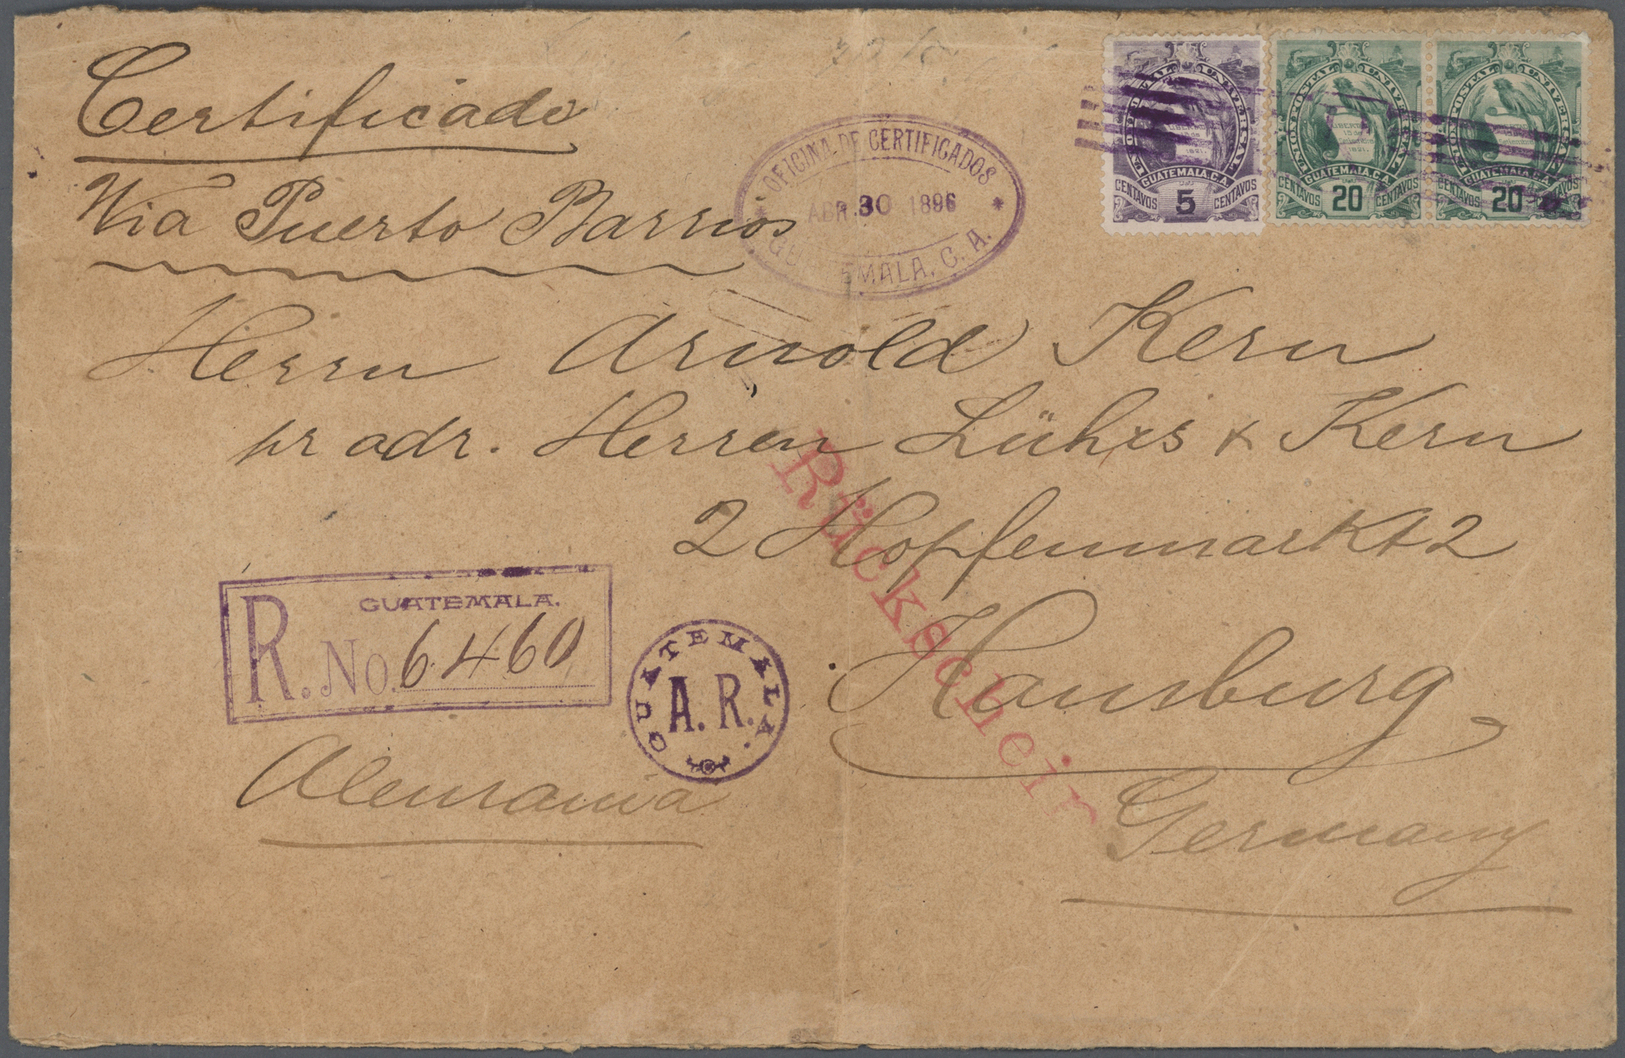 Certificado
Via Puerto Barrios
OFICINA DE CERTIFICADOS
ABR. 30 1896
GUATEMALA, C. A.
UNION POSTAL UNIVERSAL
GUATEMALA C.A.
CENTAVOS 5 CENTAVOS
UNION POSTAL UNIVERSAL
GUATEMALA C.A.
CENTAVOS 20 CENTAVOS
UNION POSTAL UNIVERSAL
GUATEMALA C.A.
CENTAVOS 20 CENTAVOS
Herrn Arnold Kern
pr adr. Herren Lührs & Kern
2 Hopfenmarkt 2
Hamburg
Germany
Rückschein
GUATEMALA.
R. No. 6460
GUATEMALA.
A. R.
Alemania